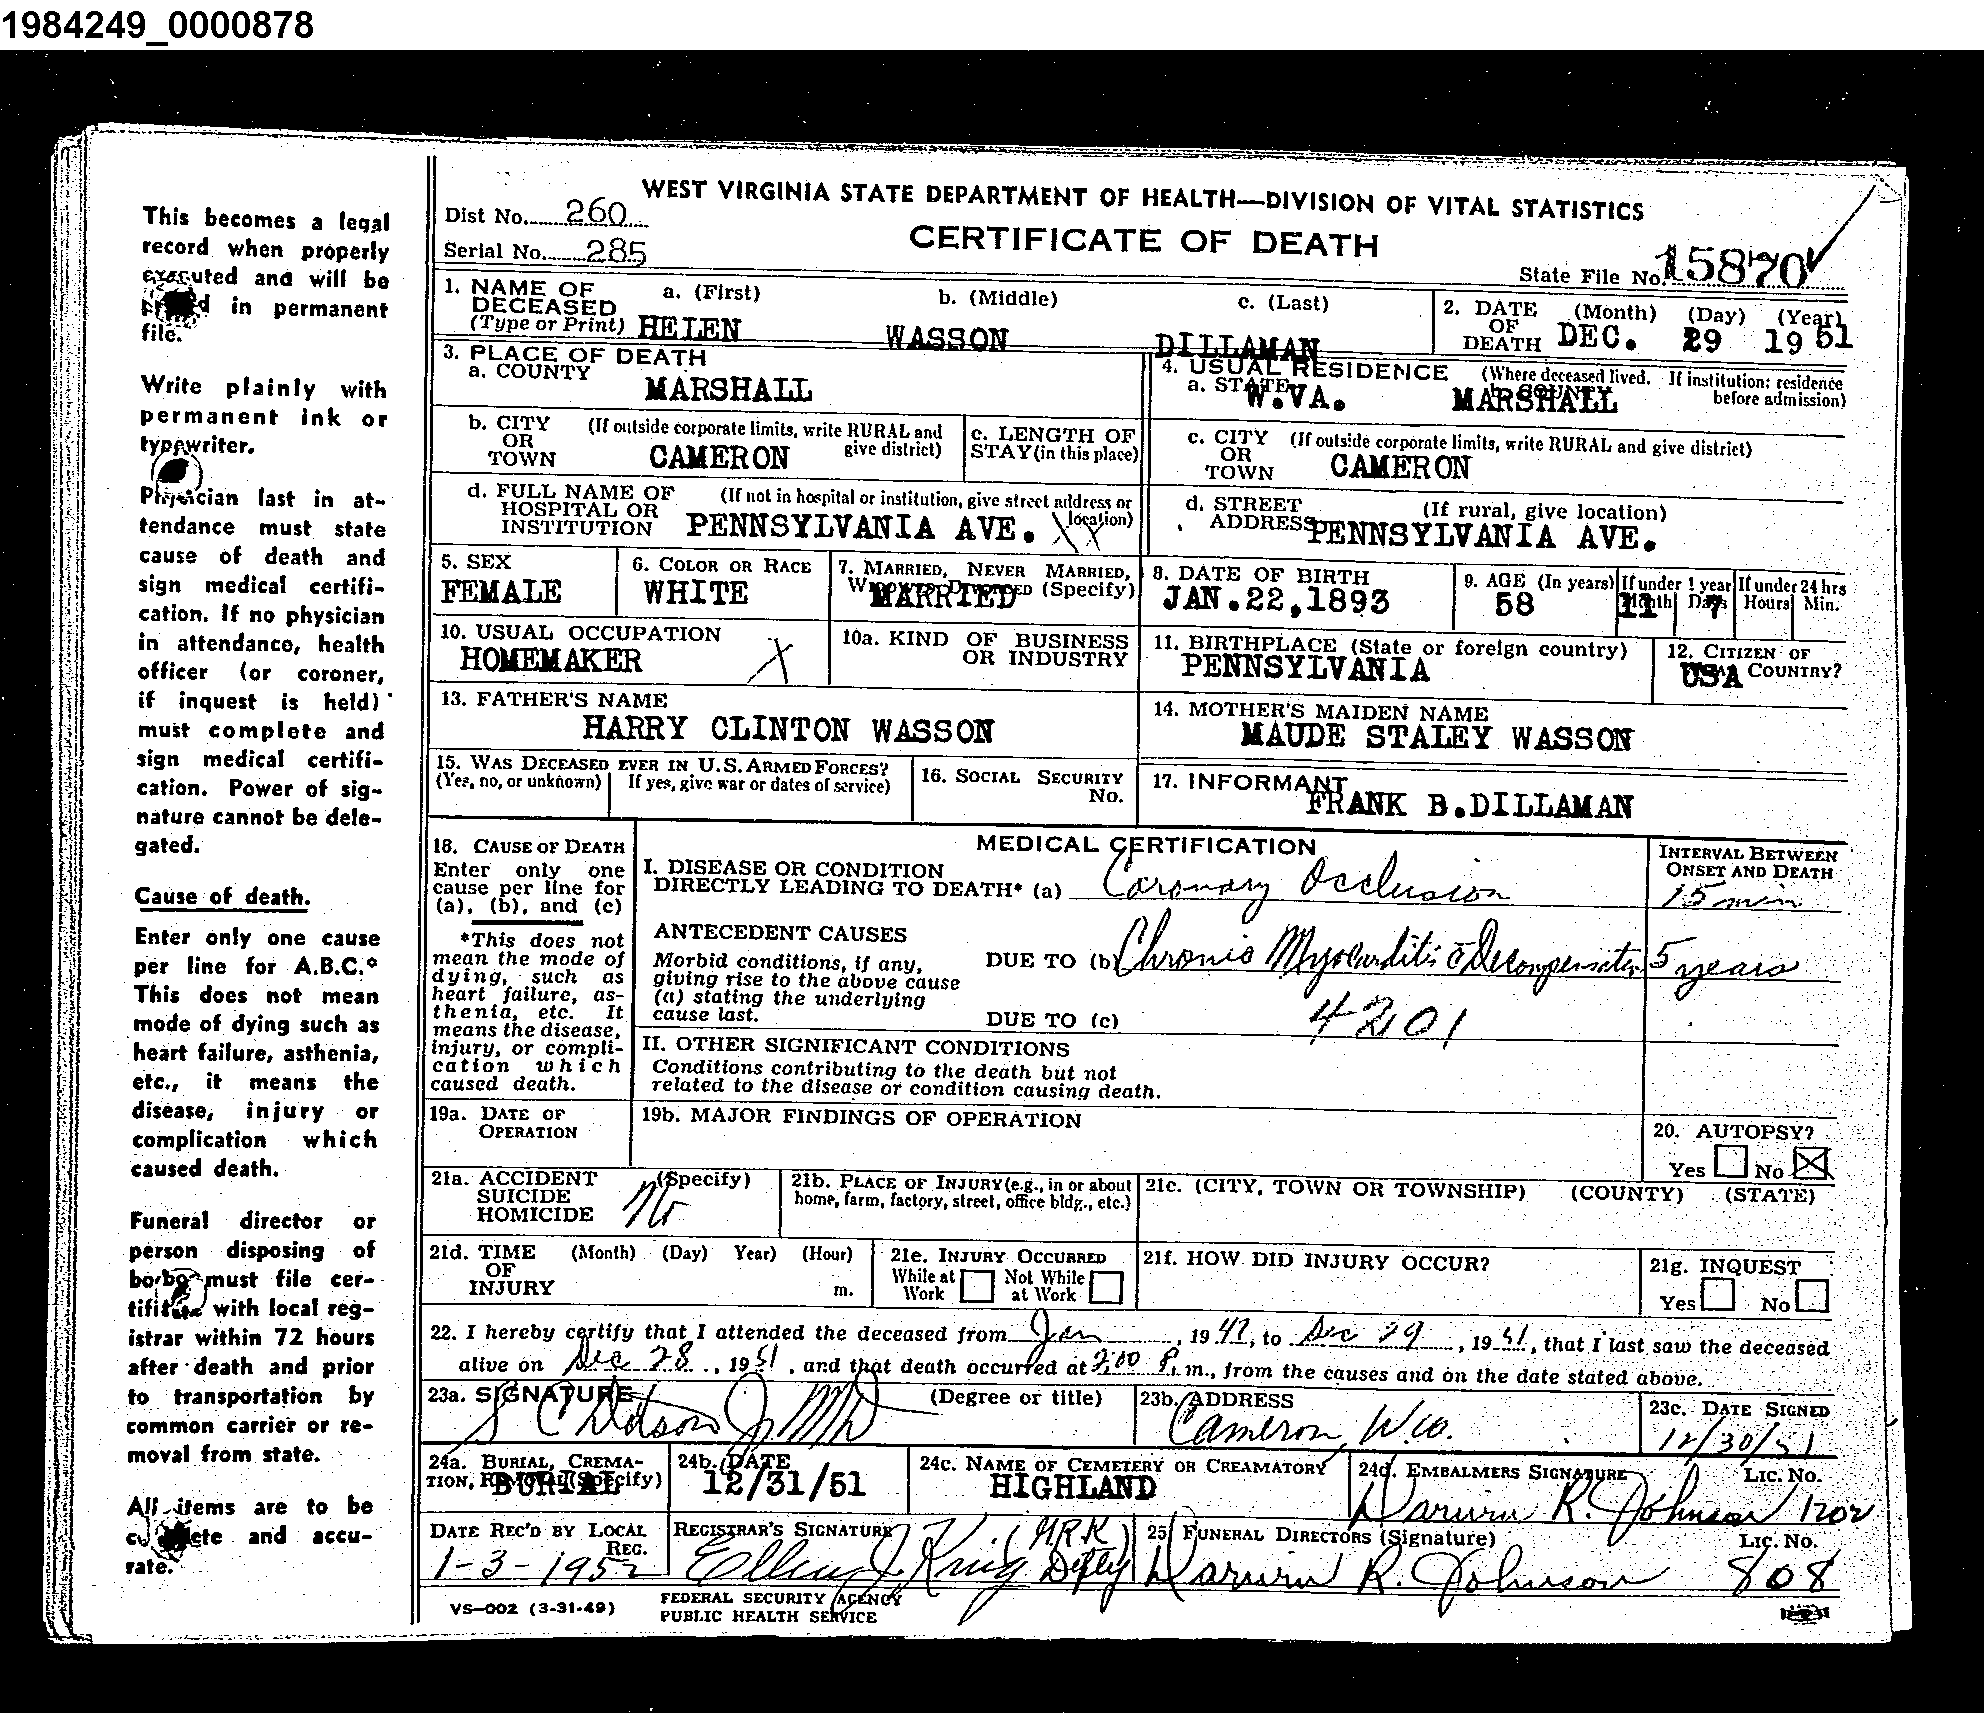 1984249_0000878
This becomes a legal
record when properly
executed and will be
in permanent
file.
Write plainly with
permanent ink or
typewriter.
Physician last in at-
tendance must state
cause of death and
sign medical certifi-
cation. If no physician
in attendance, health
officer (or coroner,
if inquest is held)
must complete and
sign medical certifi-
cation. Power of sig-
nature cannot be dele-
gated.
Cause of death.
Enter only one cause
per line for A.B.C.*
This does not mean
mode of dying such as
heart failure, asthenia,
etc., it means the
disease, injury or
complication which
caused death.
Funeral director or
person disposing of
must file cer-
with local reg-
istrar within 72 hours
after death and prior
to transportation by
common carrier or re-
moval from state.
All items are to be
and accu-
rate.
WEST VIRGINIA STATE DEPARTMENT OF HEALTH—DIVISION OF VITAL STATISTICS
Dist No. 260
CERTIFICATE OF DEATH
Serial No. 285
State File No. 15870
1. NAME OF DECEASED (Type or Print) a. (First) b. (Middle) c. (Last)
HELEN WASSON DILLAMAN
2. DATE OF DEATH (Month) (Day) (Year)
DEC. 29 1951
3. PLACE OF DEATH
a. COUNTY MARSHALL
4. USUAL RESIDENCE (Where deceased lived. If institution: residence before admission)
a. STATE W.VA. b. COUNTY MARSHALL
b. CITY OR TOWN (If outside corporate limits, write RURAL and give district) CAMERON
c. LENGTH OF STAY (in this place)
c. CITY OR TOWN (If outside corporate limits, write RURAL and give district) CAMERON
d. FULL NAME OF HOSPITAL OR INSTITUTION (If not in hospital or institution, give street address or location) PENNSYLVANIA AVE. XX
d. STREET ADDRESS (If rural, give location) PENNSYLVANIA AVE.
5. SEX FEMALE
6. COLOR OR RACE WHITE
7. MARRIED, NEVER MARRIED, (Specify) MARRIED
8. DATE OF BIRTH JAN.22,1893
9. AGE (In years) 58 If under 1 year Month 11 Days 7 If under 24 hrs Hours Min.
10. USUAL OCCUPATION HOMEMAKER X
10a. KIND OF BUSINESS OR INDUSTRY
11. BIRTHPLACE (State or foreign country) PENNSYLVANIA
12. CITIZEN OF COUNTRY? USA
13. FATHER'S NAME
HARRY CLINTON WASSON
14. MOTHER'S MAIDEN NAME
MAUDE STALEY WASSON
15. WAS DECEASED EVER IN U.S. ARMED FORCES?
(Yes, no, or unknown) If yes, give war or dates of service)
16. SOCIAL SECURITY No.
17. INFORMANT FRANK B.DILLAMAN
18. CAUSE OF DEATH
Enter only one
cause per line for
(a), (b), and (c)
*This does not
mean the mode of
dying, such as
heart failure, as-
thenia, etc. It
means the disease,
injury, or compli-
cation which
caused death.
MEDICAL CERTIFICATION
INTERVAL BETWEEN ONSET AND DEATH
I. DISEASE OR CONDITION
DIRECTLY LEADING TO DEATH* (a) Coronary Occlusion 15 min
ANTECEDENT CAUSES
Morbid conditions, if any,
giving rise to the above cause
(a) stating the underlying
cause last.
DUE TO (b) Chronic Myocarditis c̄ Decompensation 5 years
DUE TO (c) 4201
II. OTHER SIGNIFICANT CONDITIONS
Conditions contributing to the death but not
related to the disease or condition causing death.
19a. DATE OF OPERATION
19b. MAJOR FINDINGS OF OPERATION
20. AUTOPSY?
Yes No X
21a. ACCIDENT SUICIDE HOMICIDE (Specify) No
21b. PLACE OF INJURY (e.g., in or about
home, farm, factory, street, office bldg., etc.)
21c. (CITY, TOWN OR TOWNSHIP) (COUNTY) (STATE)
21d. TIME OF INJURY (Month) (Day) Year) (Hour) m.
21e. INJURY OCCURRED
While at Work Not While at Work
21f. HOW DID INJURY OCCUR?
21g. INQUEST
Yes No
22. I hereby certify that I attended the deceased from Jan, 1947, to Dec 29, 1951, that I last saw the deceased
alive on Dec 28, 1951, and that death occurred at 2:00 P.m., from the causes and on the date stated above.
23a. SIGNATURE (Degree or title) Jr MD
23b. ADDRESS Cameron W.Va.
23c. DATE SIGNED 12/30/51
24a. BURIAL, CREMA-
TION, REMOVAL (Specify) BURIAL
24b. DATE 12/31/51
24c. NAME OF CEMETERY OR CREAMATORY HIGHLAND
24d. EMBALMERS SIGNATURE LIC. No.
Darwin R. Johnson 1202
DATE REC'D BY LOCAL REG.
1-3-1952
REGISTRAR'S SIGNATURE
King Depty
25. FUNERAL DIRECTORS (Signature) LIC. No.
Darwin R. Johnson 808
VS—002 (3-31-49)
FEDERAL SECURITY AGENCY
PUBLIC HEALTH SERVICE